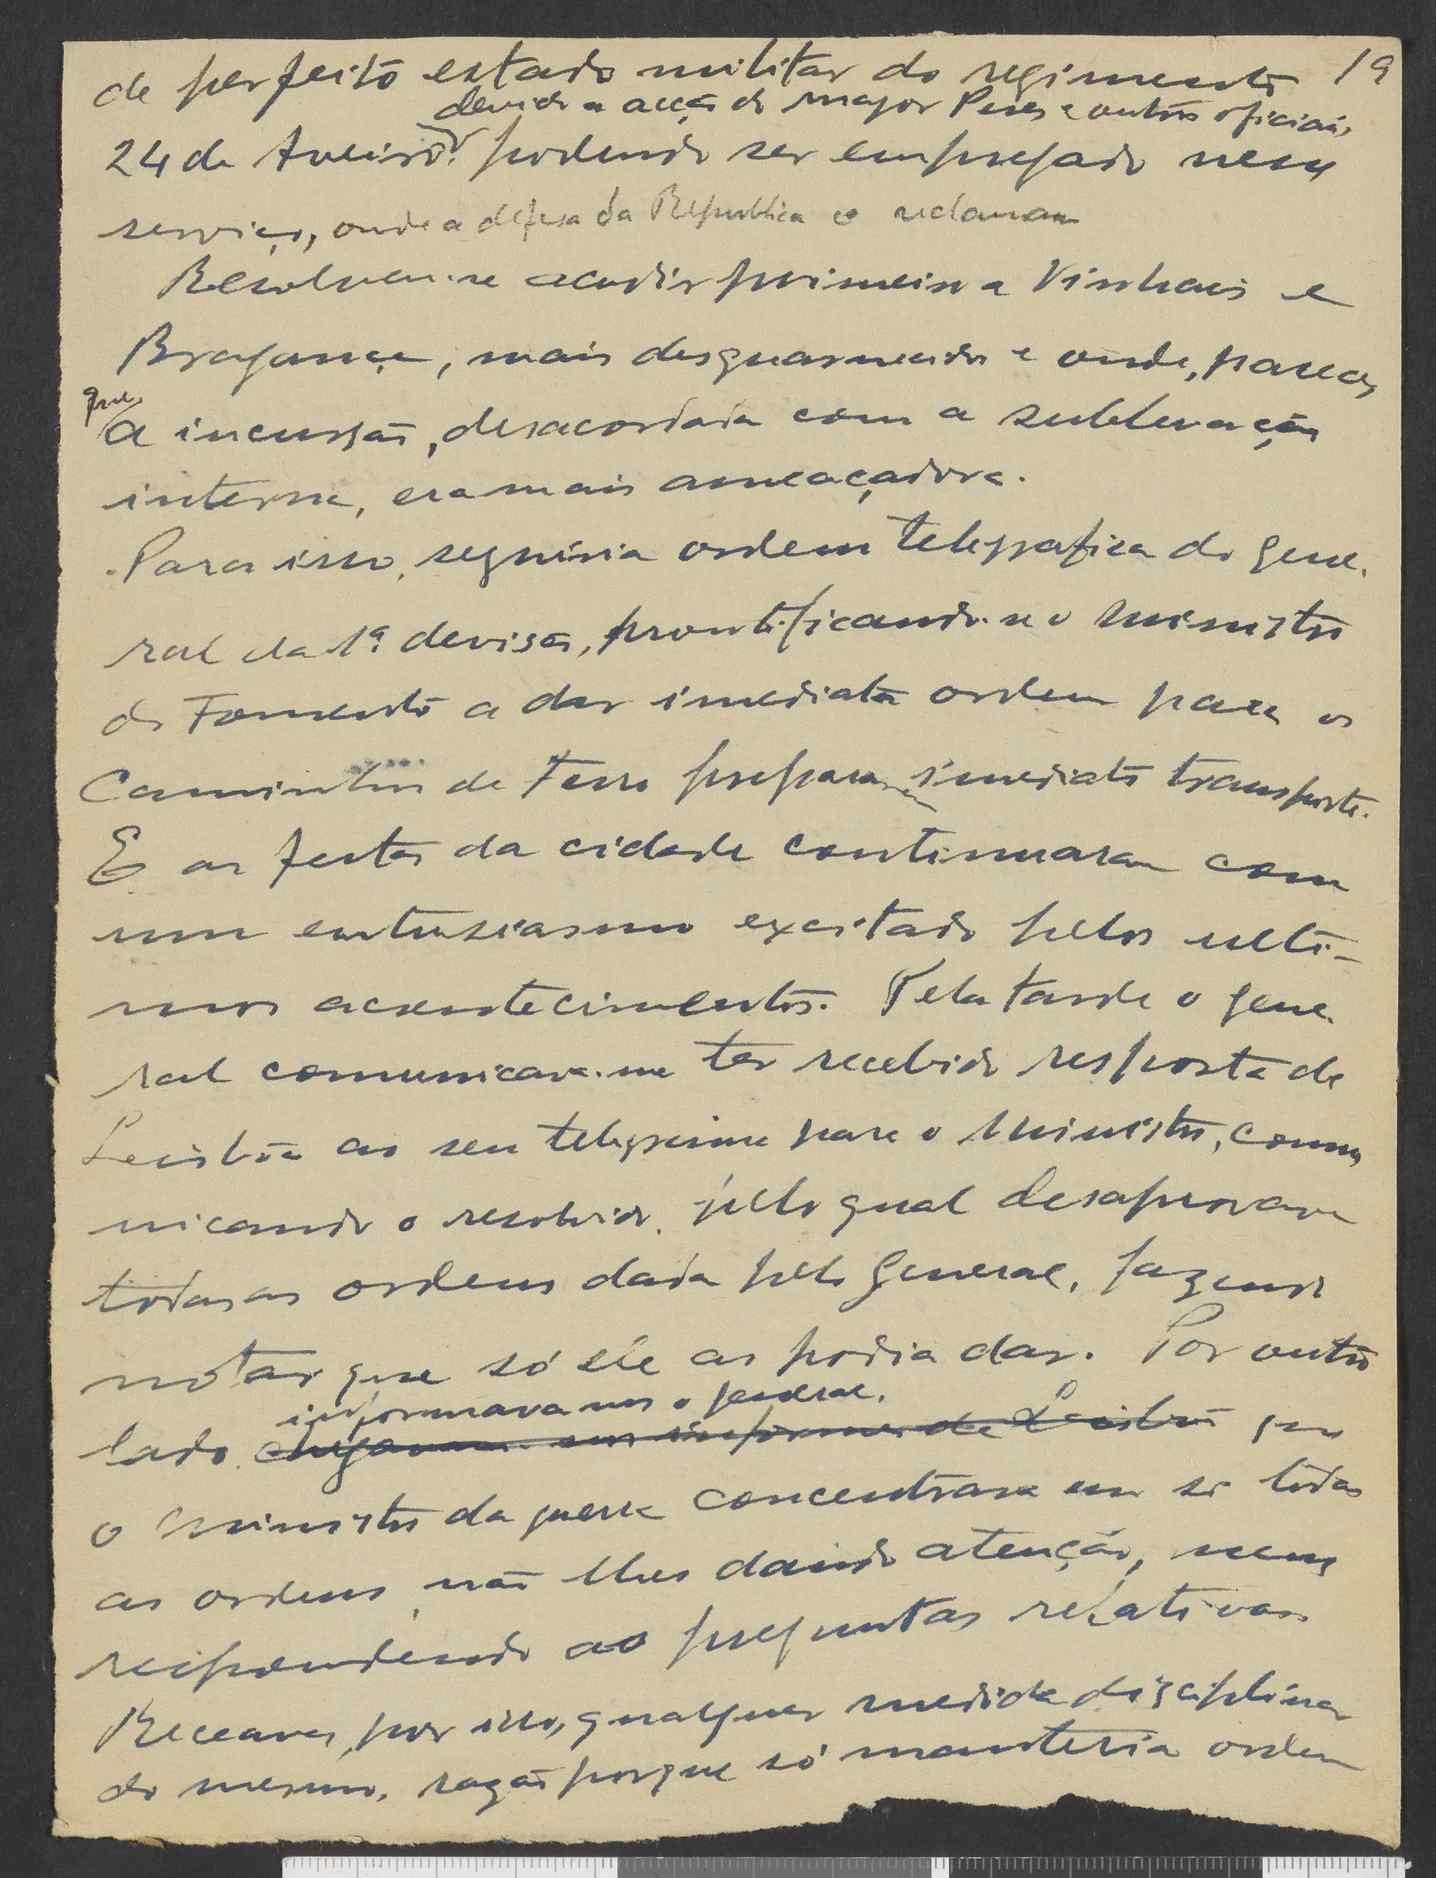 19
de perfeito estado militar do regimento
devido a acção do major Peres e outros oficiais,
24 de Aveiro podendo ser empregado nesse
serviço, onde a defesa da Republica o reclamam
Resolveu-se acudir primeiro a Vinhais e
Bragança, mais desguarnecida e onde, pareceu
que
a incursão, desacordada com a sublevação
interna, era mais ameaçadora.
Para isso, seguiria ordem telegrafica do gene-
ral da 1ª devisão, prontificando-se o ministro
do Fomento a dar imediata ordem para os
Caminhos de Ferro prepararem imediato transporte.
E as festas da cidade continuaram com
um entusiasmo excitado pelos ulti-
mos acontecimentos. Pela tarde o gene-
ral comunicava-me ter recebido resposta de
Leisbôa ao seu telegrama para o ministro, comu
nicando o resolvido, pelo qual desaprovava
todas as ordens dada pelo General, fazendo
notar que só ele as podia dar. Por outro
informava-nos o general.
lado, chegavam-nos informes de Leisbôa que
o ministro da guerra concentrava em si todas
as ordens, não lhes dando atenção, nem
respondendo ao preguntas relativas
Receava, por isso, qualquer medida disciplinar
do mesmo, razão porque só manteria ordem